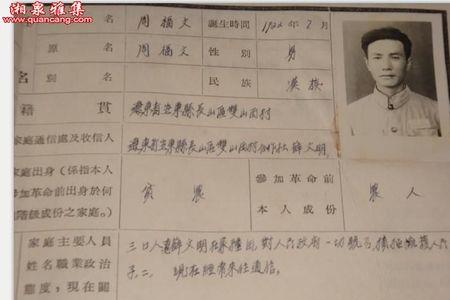 湘泉雅集
www.quancang.com
周福文 誕生時間 1922年2月
原名 周福文 性別 男
別名 民族 漢族
籍貫 遼東省安東縣長山區雙山西村
家庭通信處及收信人 遼東省安東縣長山區雙山西村 文明
家庭出身(係指本人參加革命前出身於何階級成份之家庭。) 貧農 參加革命前本人成份 農人
家庭主要人員姓名職業政治態度,現在關
三口人 文明在 對人民政府一切號召積極 人
子二 現在經常來往通信。